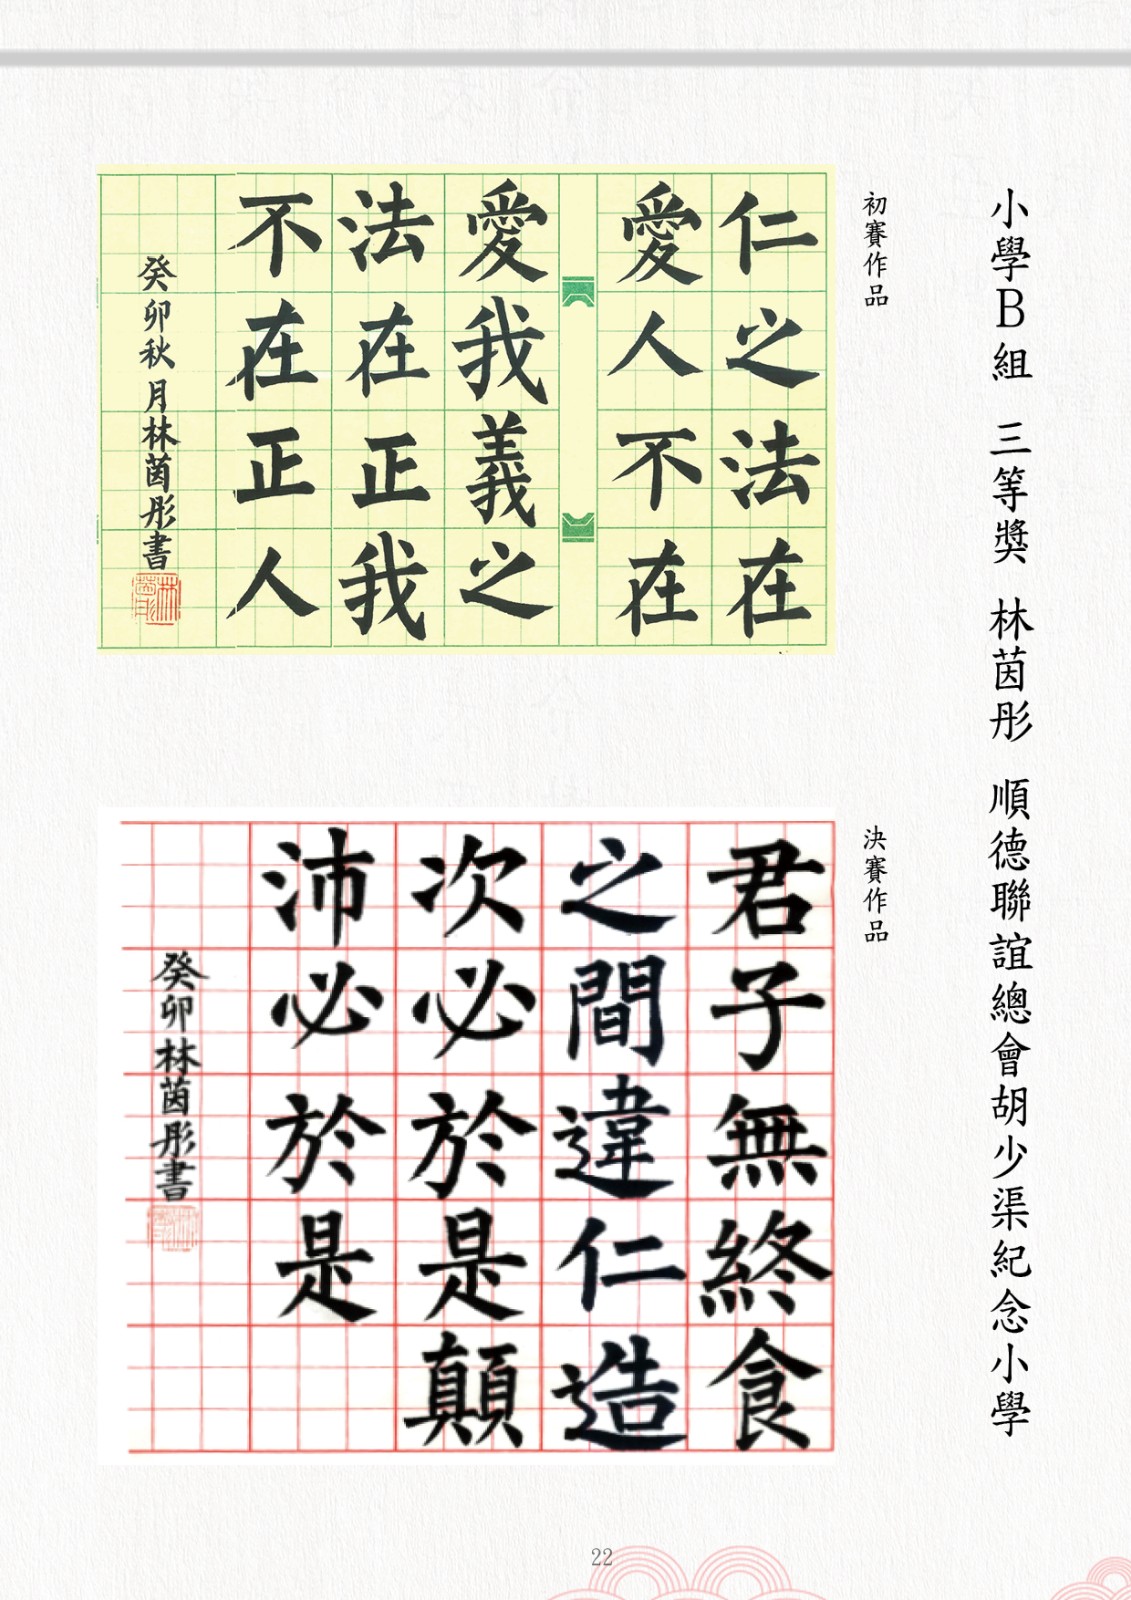 小學B組 三等獎 林茵彤 順德聯誼總會胡少渠紀念小學
初賽作品
仁之法在
愛人不在
愛我義之
法在正我
不在正人
癸卯秋月林茵彤書
決賽作品
君子無終食
之間違仁造
次必於是顛
沛必於是
癸卯林茵彤書
22